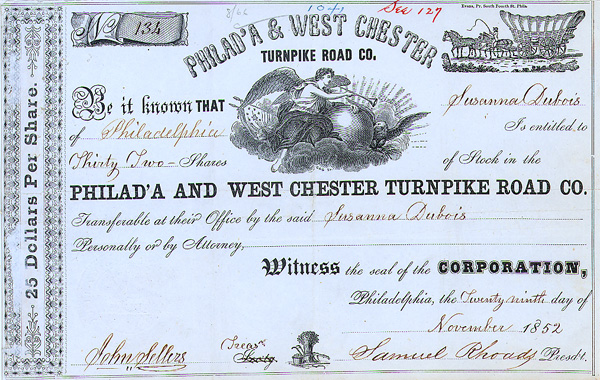 Evans, Pr. South Fourth St. Phila
1041 See 127
No 134
PHILAD'A & WEST CHESTER
TURNPIKE ROAD CO.
Be it known THAT Susanna Dubois
of Philadelphia Is entitled to
Thirty Two - Shares of Stock in the
PHILAD'A AND WEST CHESTER TURNPIKE ROAD CO.
Transferable at their Office by the said Susanna Dubois
Personally or by Attorney,
Witness the seal of the CORPORATION,
Philadelphia, the Twenty ninth day of
November 1852
John Sellers Treasr Samuel Rhoads Presdt.
25 Dollars Per Share.